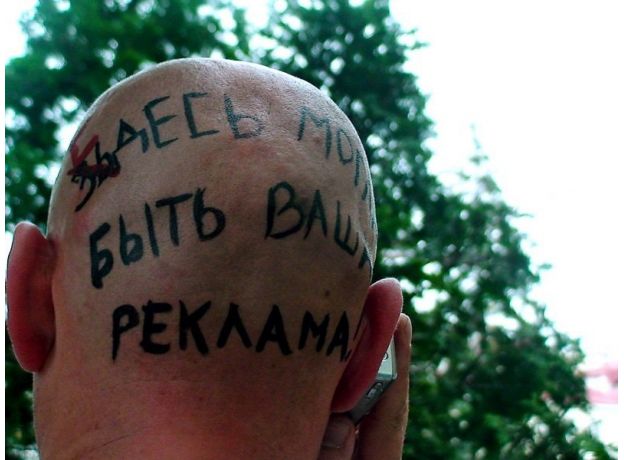 ЗДЕСЬ МОГ
БЫТЬ ВАША
РЕКЛАМА!